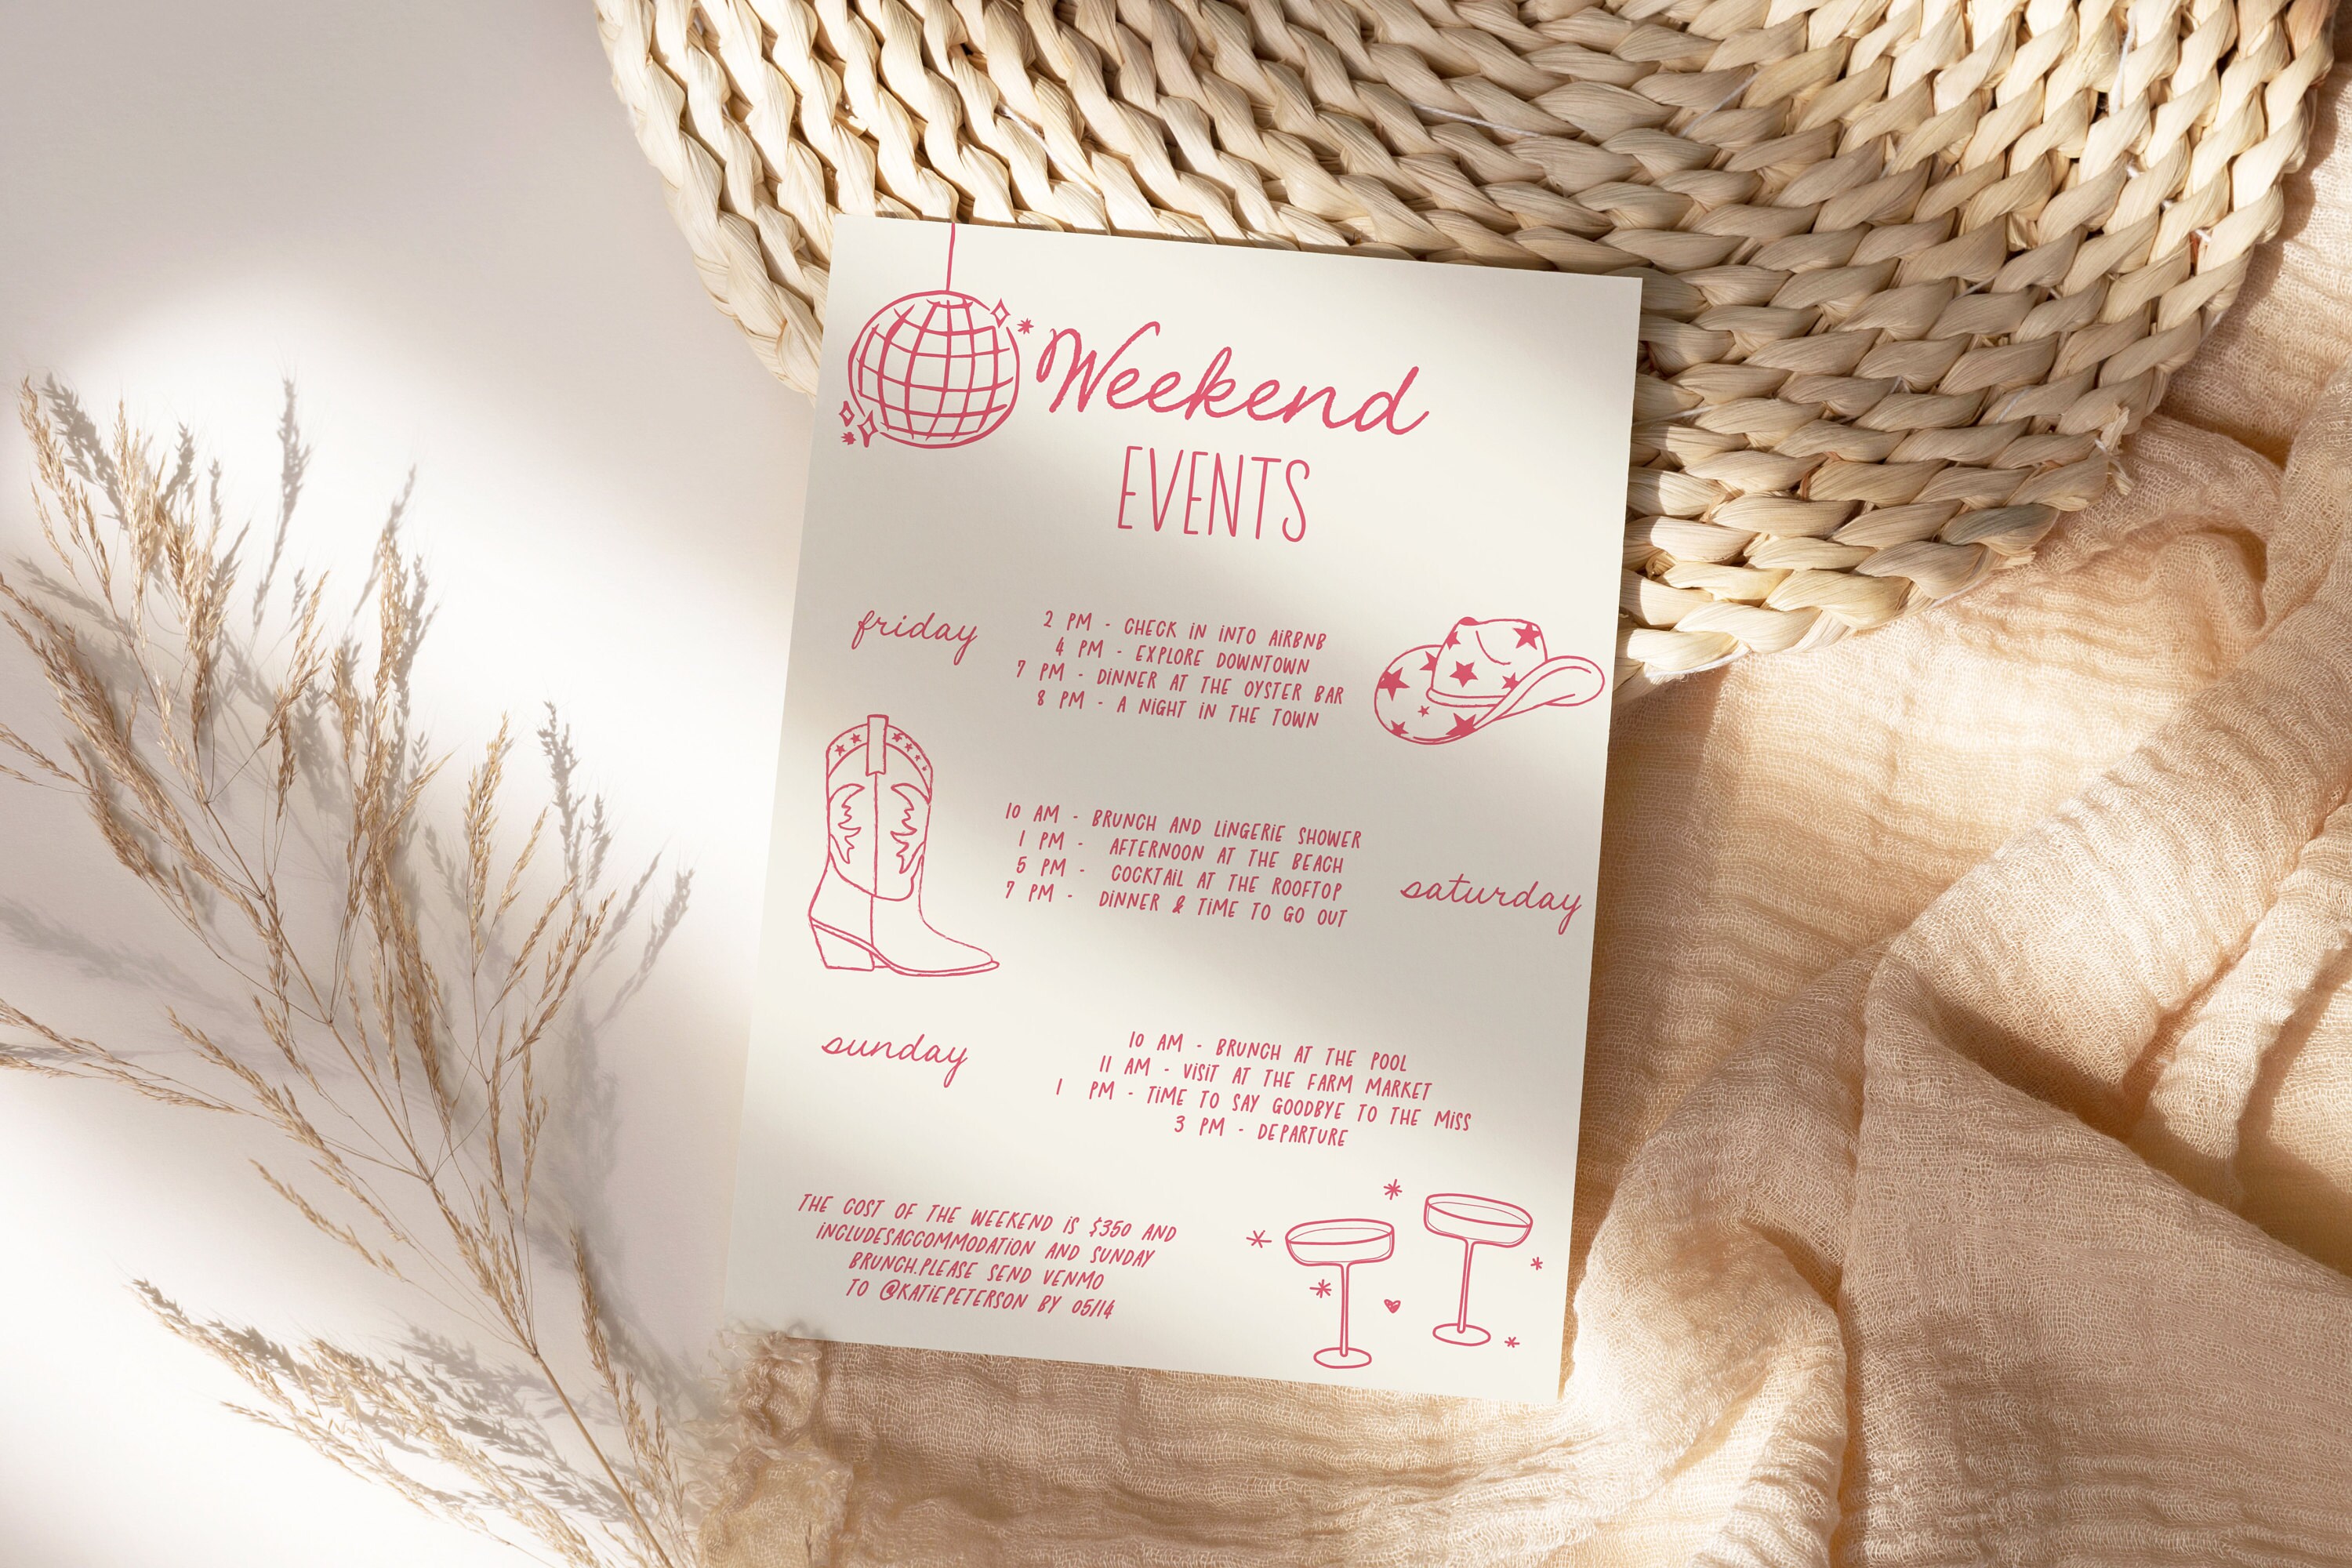 Weekend
EVENTS
friday
2 PM - CHECK IN INTO AIRBNB
4 PM - EXPLORE DOWNTOWN
7 PM - DINNER AT THE OYSTER BAR
8 PM - A NIGHT IN THE TOWN
10 AM - BRUNCH AND LINGERIE SHOWER
1 PM - AFTERNOON AT THE BEACH
5 PM - COCKTAIL AT THE ROOFTOP
7 PM - DINNER & TIME TO GO OUT
saturday
sunday
10 AM - BRUNCH AT THE POOL
11 AM - VISIT AT THE FARM MARKET
1 PM - TIME TO SAY GOODBYE TO THE MISS
3 PM - DEPARTURE
THE COST OF THE WEEKEND IS $350 AND
INCLUDESACCOMMODATION AND SUNDAY
BRUNCH.PLEASE SEND VENMO
TO @KATIEPETERSON BY 05/14